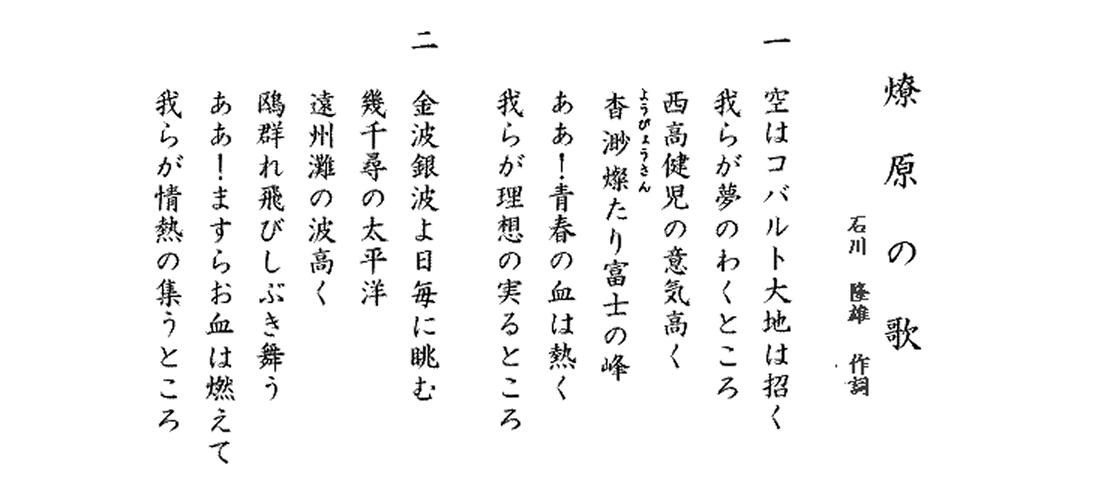 燎原の歌
石川 隆雄 作詞
一 空はコバルト大地は招く
我らが夢のわくところ
西高健児の意気高く
杳渺燦たり富士の峰
ようびょうさん
ああ!青春の血は熱く
我らが理想の実るところ
二 金波銀波よ日毎に眺む
幾千尋の太平洋
遠州灘の波高く
鴎群れ飛びしぶき舞う
ああ!ますらお血は燃えて
我らが情熱の集うところ